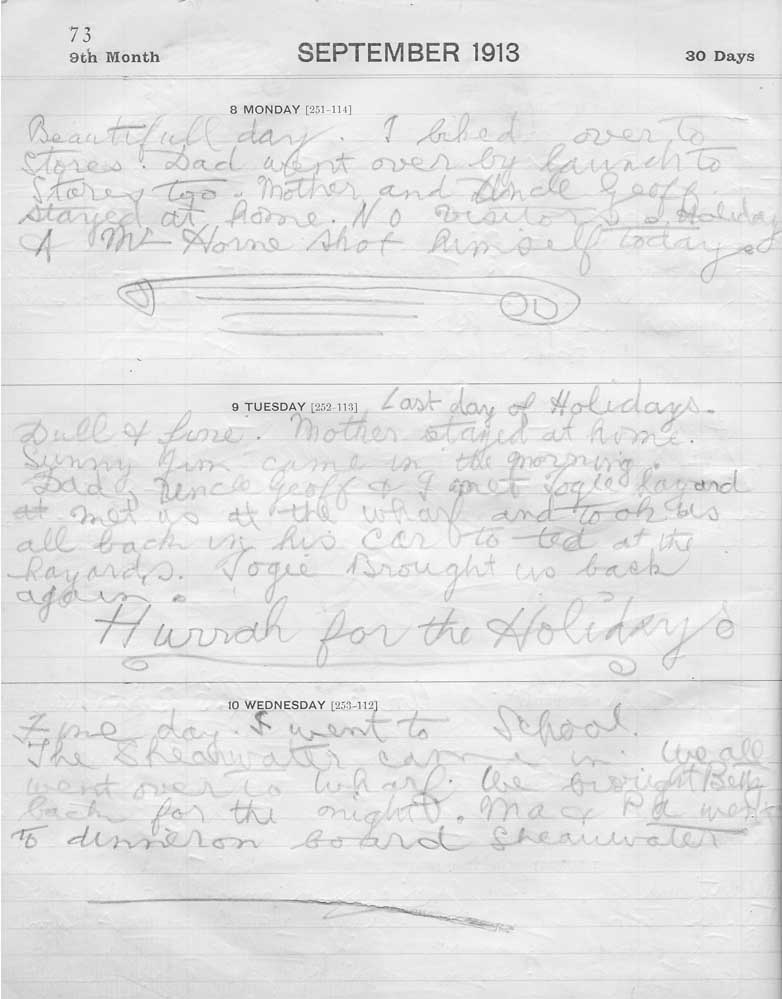 73
9th Month SEPTEMBER 1913 30 Days
8 MONDAY [251-114]
Beautifull day. I biked over to
Stores. Dad went over by launch to
Stores too. Mother and Uncle Geoff
stayed at home. No visitors a Holiday
A Mr Horne shot himself today.
9 TUESDAY [252-113] Last day of Holidays.
Dull & fine. Mother stayed at home.
Sunny Jim came in the morning.
Dad, Uncle Geoff & I met Togie Layard
at met us at the wharf and took us
all back in his car to tea at the
Layards. Togie Brought us back
again.
Hurrah for the Holidays
10 WEDNESDAY [253-112]
Fine day. I went to School.
The Shearwater came in. We all
went over to wharf. We brought
back for the night. Ma & Pa went
to dinner on board Shearwater